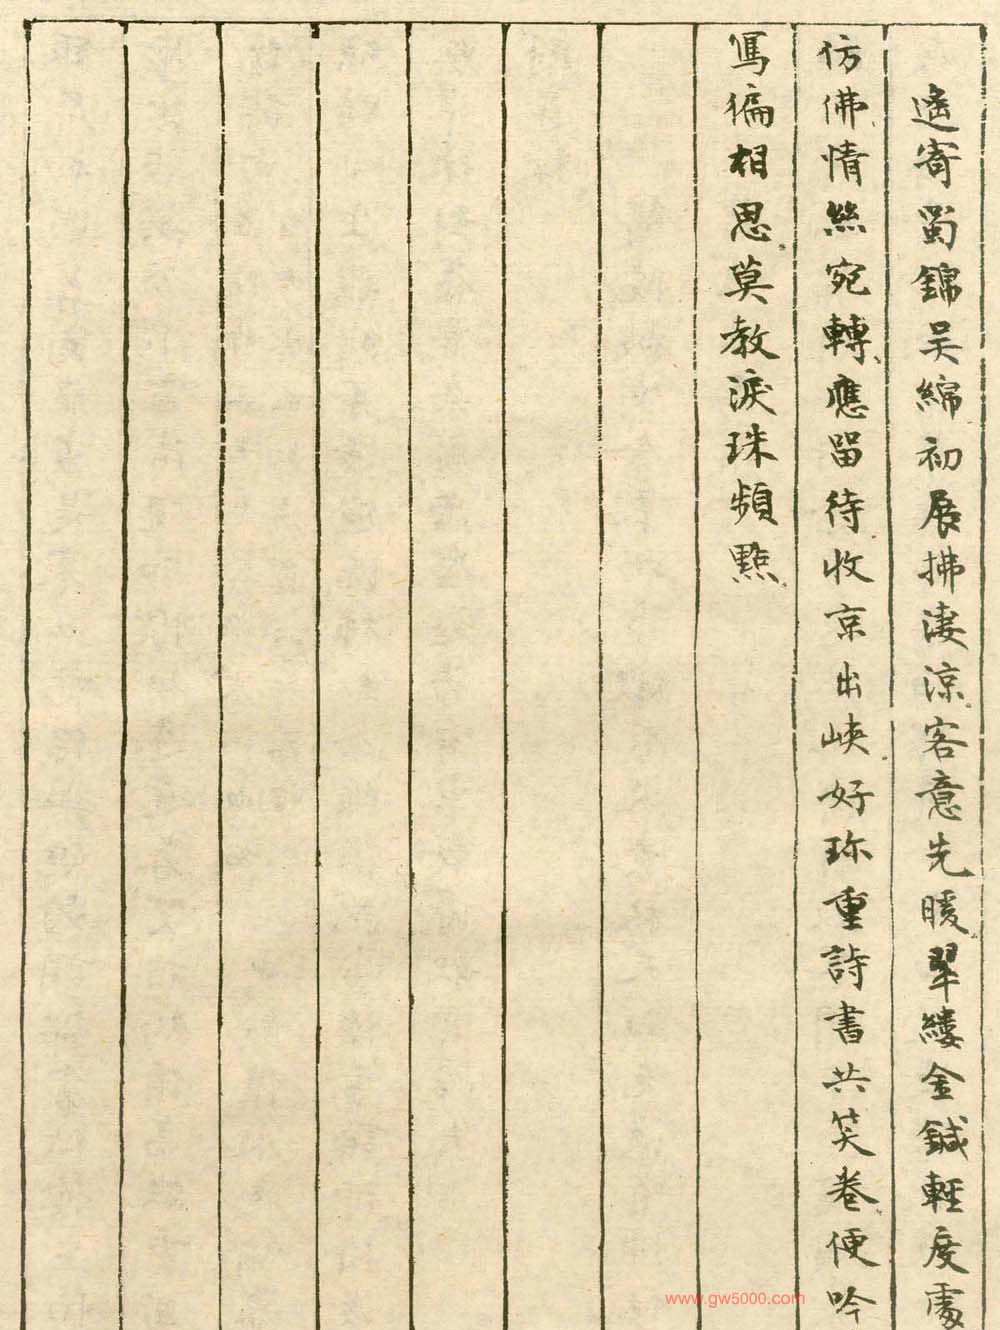 遙寄蜀錦吳綿初展拂淒涼客意先暖翠縷金鍼輕度處
仿佛情絲宛轉應留待收京出峽好珎重詩書共笑卷便吟
寫徧相思莫教淚珠頻點
www.gw5000.com